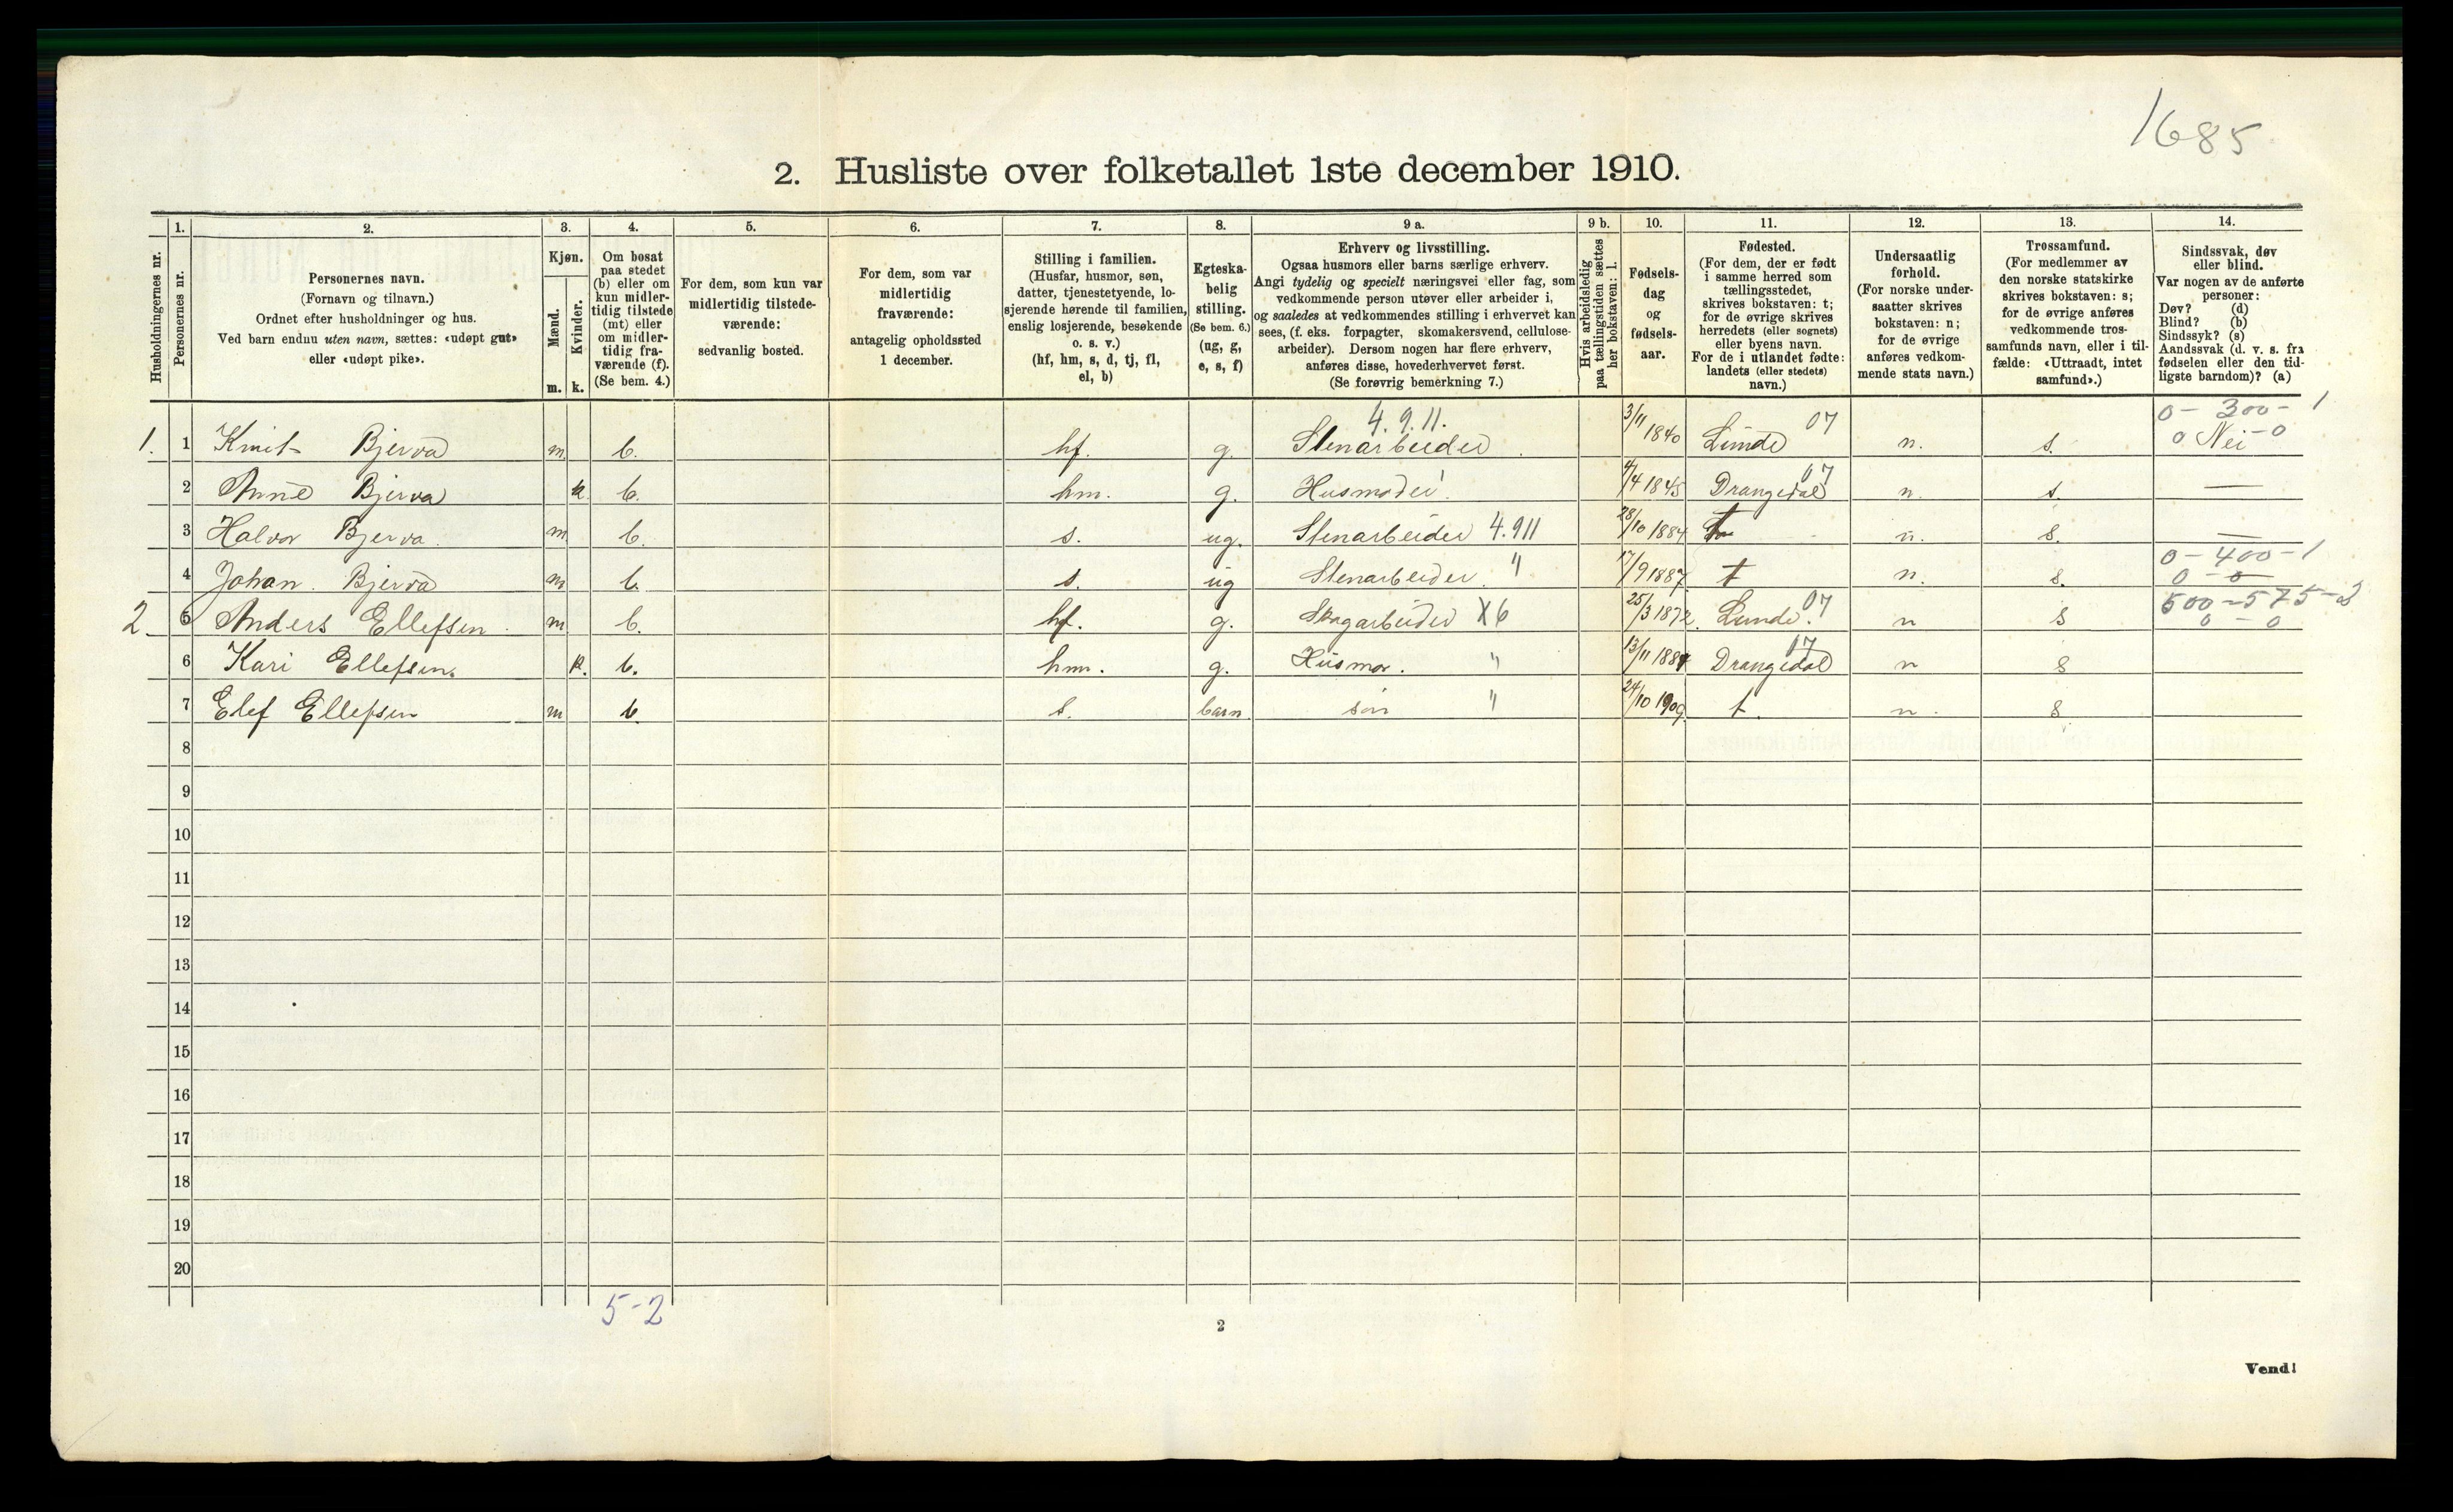 1685
2. Husliste over folketallet 1ste december 1910.
Husholdningernes nr.
1.
Personernes nr.
2.
Personernes navn.
(Fornavn og tilnavn.)
Ordnet efter husholdninger og hus.
Ved barn endnu uten navn, sættes: «udøpt gut»
eller «udøpt pike».
3.
Kjøn.
Mænd.
m.
Kvinder.
k.
4.
Om bosat
paa stedet
(b) eller om
kun midler-
tidig tilstede
(mt) eller
om midler-
tidig fra-
værende (f).
(Se bem. 4.)
5.
For dem, som kun var
midlertidig tilstede-
værende:
sedvanlig bosted.
6.
For dem, som var
midlertidig
fraværende:
antagelig opholdssted
1 december.
7.
Stilling i familien.
(Husfar, husmor, søn,
datter, tjenestetyende, lo-
sjerende hørende til familien,
enslig losjerende, besøkende
o. s. v.)
(hf, hm, s, d, tj, fl,
el, b)
8.
Egteska-
belig
stilling.
(Se bem. 6.)
(ug, g,
e, s, f)
9 a.
Erhverv og livsstilling.
Ogsaa husmors eller barns særlige erhverv.
Angi tydelig og specielt næringsvei eller fag, som
vedkommende person utøver eller arbeider i,
og saaledes at vedkommendes stilling i erhvervet kan
sees, (f. eks. forpagter, skomakersvend, cellulose-
arbeider). Dersom nogen har flere erhverv,
anføres disse, hovederhvervet først.
(Se forøvrig bemerkning 7.)
9 b.
Hvis arbeidsledig
paa tællingstiden sættes
her bokstaven: l.
10.
Fødsels-
dag
og
fødsels-
aar.
11.
Fødested.
(For dem, der er født
i samme herred som
tællingsstedet,
skrives bokstaven: t;
for de øvrige skrives
herredets (eller sognets)
eller byens navn.
For de i utlandet fødte:
landets (eller stedets)
navn.)
12.
Undersaatlig
forhold.
(For norske under-
saatter skrives
bokstaven: n;
for de øvrige
anføres vedkom-
mende stats navn.)
13.
Trossamfund.
(For medlemmer av
den norske statskirke
skrives bokstaven: s;
for de øvrige anføres
vedkommende tros-
samfunds navn, eller i til-
fælde: «Uttraadt, intet
samfund».)
14.
Sindssvak, døv
eller blind.
Var nogen av de anførte
personer:
Døv? (d)
Blind? (b)
Sindssyk? (s)
Aandssvak (d. v. s. fra
fødselen eller den tid-
ligste barndom)? (a)
4.9.11. 07 0 - 300 - 1
1. 1 Knut Bjerva m b. hf. g. Stenarbeider 3/11 1840 Lunde n. s. 0 Nei - 0
07
2 Anne Bjerva k b. hm. g. Husmoder 4/4 1845 Drangedal n. s. —
3 Halvor Bjerva. m b. s. ug. Stenarbeider 4.911 28/10 1884 t n. s. —
0 - 400 - 1
4 Johan. Bjerva m b. s. ug Stenarbeider. " 17/9 1887 t n. s. 0 - 0
07 500 - 575 - 2
2. 5 Anders Ellefsen m b. hf. g. Skogarbeider X6 25/3 1872. Lunde. n s 0 - 0
07
6 Kari Ellefsen. k. b. hm. g. Husmor. " 13/11 1884 Drangedal n s
7 Elef Ellefsen m b. s. barn søn " 24/10 1909. t. n. s
8
9
10
11
12
13
14
15
16
17
18
19
20
5-2
2
Vend!